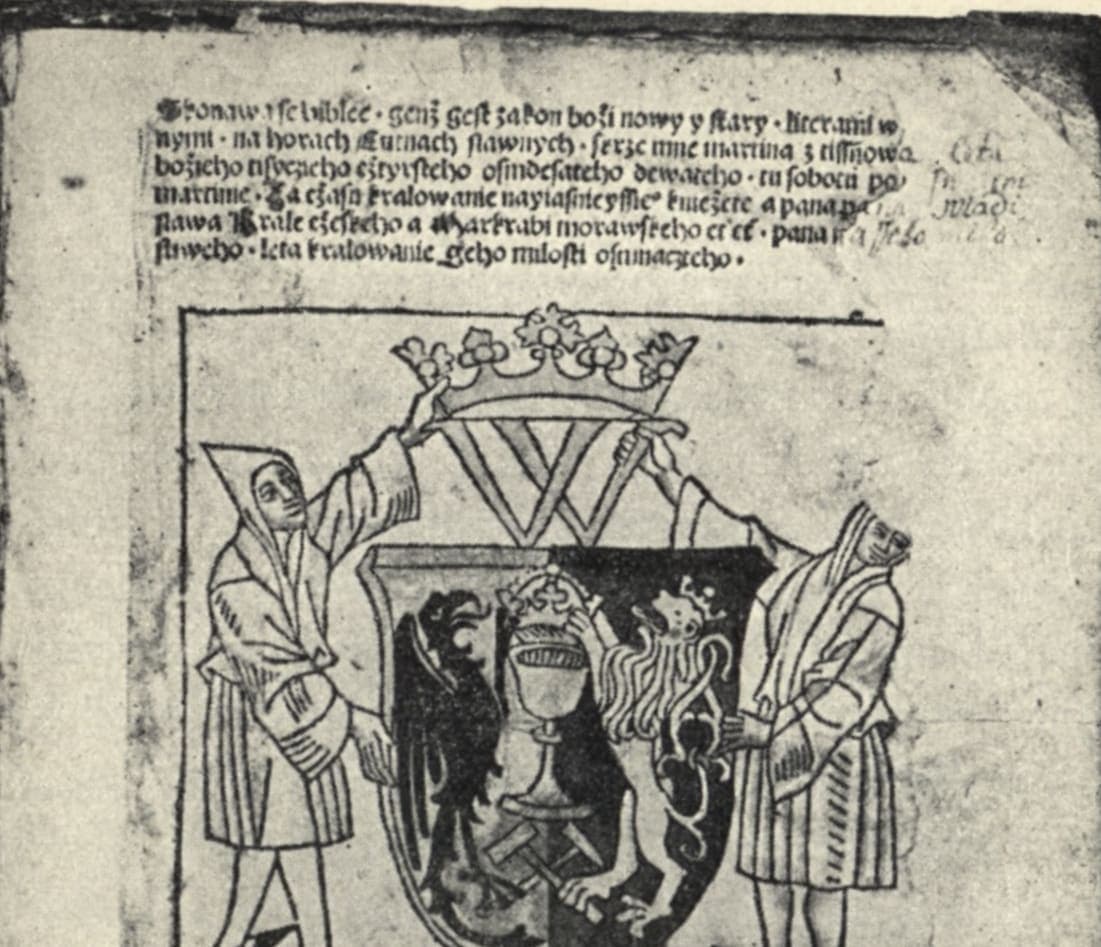 Skonawa se biblee · genž gest zakon boži nowy y stary · literami w
nymi · na horach Cutnach slawnych · serze mne martina z tissnowa
božieho tisyczieho cžtyrsteho osmdesateho dewateho · tu sobotu po
martinie · Za cžasu kralowanie nayiasnieyssie° kniežete a pana
slawa Krale cžeskeho a Markrabi morawskeho ec̄ ec̄ · pana
stiweho · leta kralowanie geho milosti osmnaczteho ·